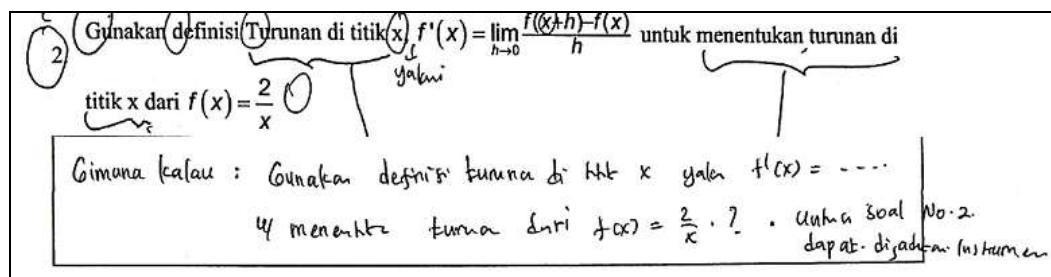 2 Gunakan definisi Turunan di titik x, f'(x) = lim h→0 f((x+h)-f(x) / h untuk menentukan turunan di
yakni
titik x dari f(x) = 2/x
Gimana kalau : Gunakan definisi turunan di x f'(x) = ----
turunan dari f(x) = 2/x . ? . Untuk soal No. 2.
dapat dijadikan Instrumen